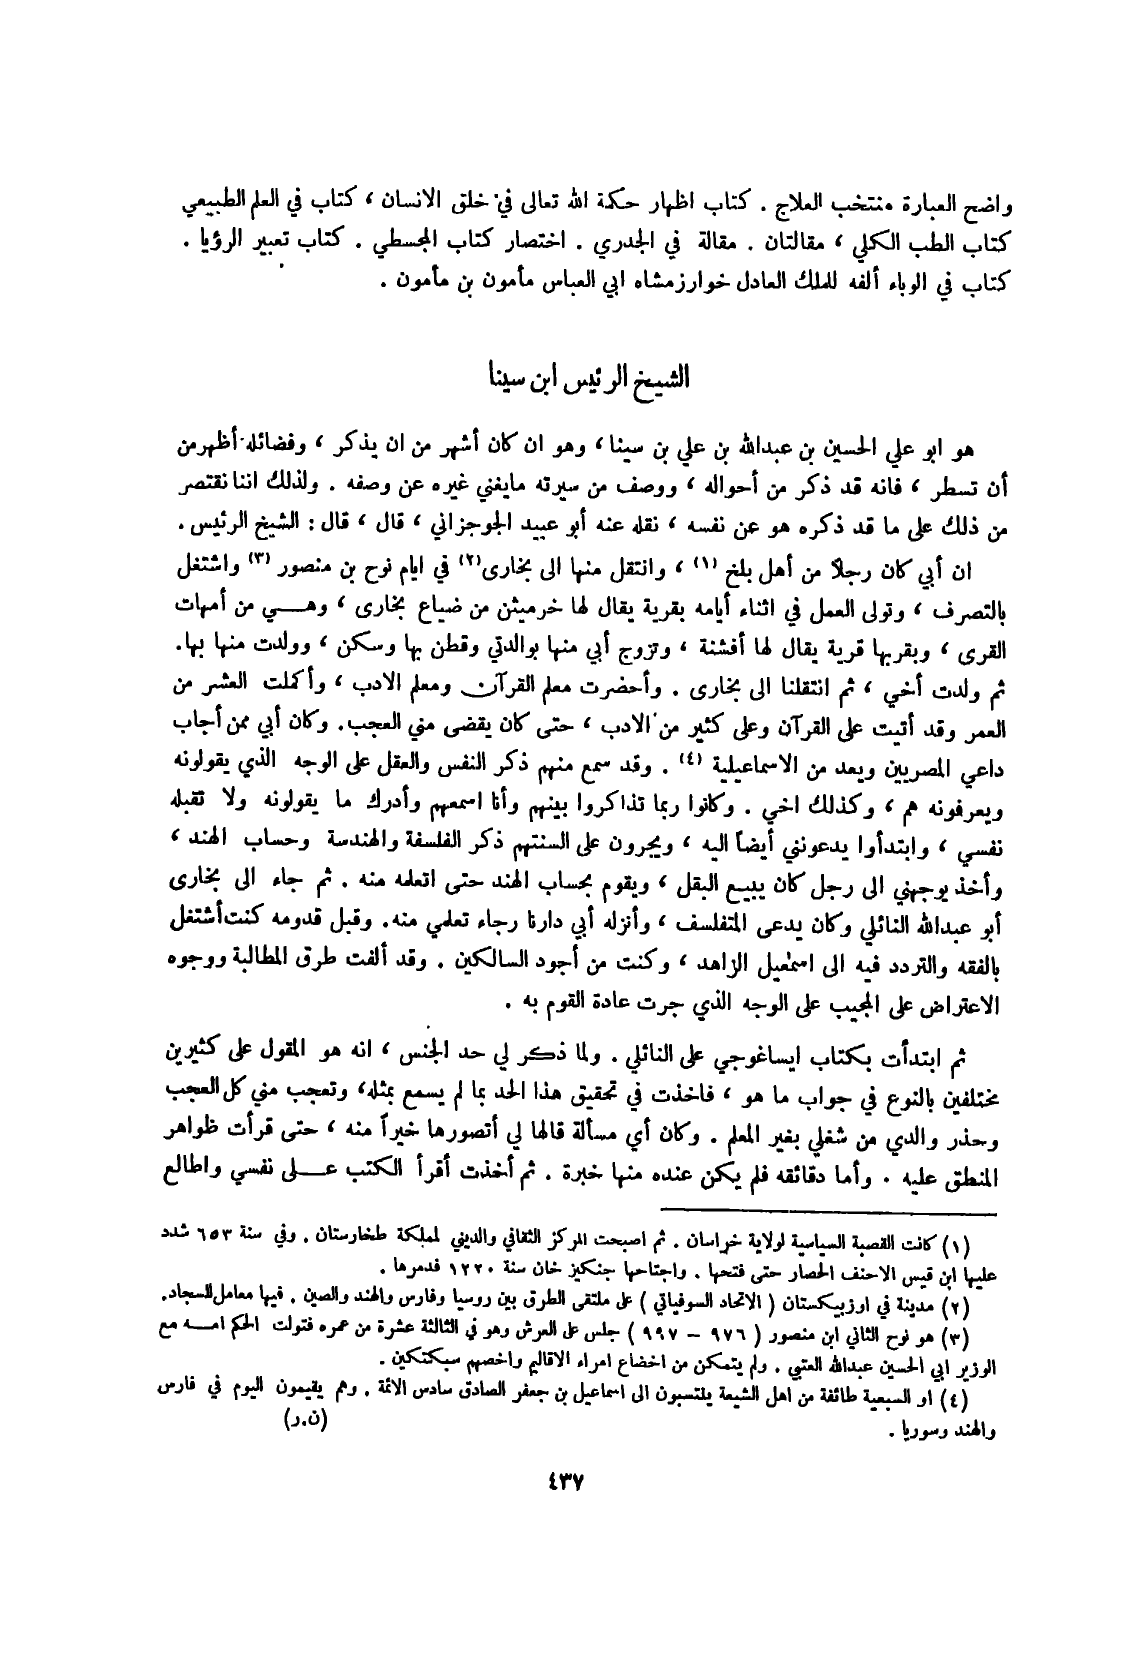 واضح العبارة منتخب العلاج . كتاب اظهار حكمة الله تعالى في خلق الانسان ، كتاب في العلم الطبيعي
كتاب الطب الكلي ، مقالتان . مقالة في الجدري . اختصار كتاب المجسطي . كتاب تعبير الرؤيا .
كتاب في الوباء ألفه للملك العادل خوارزمشاه ابي العباس مأمون بن مأمون .
الشيخ الرئيس ابن سينا
هو ابو علي الحسين بن عبدالله بن علي بن سينا ، وهو ان كان أشهر من ان يذكر ، وفضائله أظهر من
أن تسطر ، فانه قد ذكر من أحواله ، ووصف من سيرته مايغني غيره عن وصفه . ولذلك اننا نقتصر
من ذلك على ما قد ذكره هو عن نفسه ، نقله عنه أبو عبيد الجوجزاني ، قال ، قال : الشيخ الرئيس .
ان أبي كان رجلاً من أهل بلخ (١) ، وانتقل منها الى بخارى (٢) في ايام نوح بن منصور (٣) واشتغل
بالتصرف ، وتولى العمل في اثناء أيامه بقرية يقال لها خرميثن من ضياع بخارى ، وهــي من أمهات
القرى ، وبقربها قرية يقال لها أفشنة ، وتزوج أبي منها بوالدتي وقطن بها وسكن ، وولدت منها بها.
ثم ولدت أخي ، ثم انتقلنا الى بخارى . وأحضرت معلم القرآن ومعلم الادب ، وأكملت العشر من
العمر وقد أتيت على القرآن وعلى كثير من الادب ، حتى كان يقضى مني العجب. وكان أبي ممن أجاب
داعي المصريين ويعد من الاسماعيلية (٤) . وقد سمع منهم ذكر النفس والعقل على الوجه الذي يقولونه
ويعرفونه هم ، وكذلك اخي . وكانوا ربما تذاكروا بينهم وأنا اسمعهم وأدرك ما يقولونه ولا تقبله
نفسي ، وابتدأوا يدعونني أيضاً اليه ، ويجرون على السنتهم ذكر الفلسفة والهندسة وحساب الهند ،
وأخذ يوجهني الى رجل كان يبيع البقل ، ويقوم بحساب الهند حتى اتعلمه منه . ثم جاء الى بخارى
أبو عبدالله الناتلي وكان يدعى المتفلسف ، وأنزله أبي دارنا رجاء تعلمي منه. وقبل قدومه كنت أشتغل
بالفقه والتردد فيه الى اسمعيل الزاهد ، وكنت من أجود السالكين . وقد ألفت طرق المطالبة ووجوه
الاعتراض على المجيب على الوجه الذي جرت عادة القوم به .
ثم ابتدأت بكتاب ايساغوجي على الناتلي . ولما ذكر لي حد الجنس ، انه هو المقول على كثيرين
مختلفين بالنوع في جواب ما هو ، فاخذت في تحقيق هذا الحد بما لم يسمع بمثله، وتعجب مني كل العجب
وحذر والدي من شغلي بغير العلم . وكان أي مسألة قالها لي أتصورها خيراً منه ، حتى قرأت ظواهر
المنطق عليه . وأما دقائقه فلم يكن عنده منها خبرة . ثم أخذت أقرأ الكتب عــلى نفسي واطالع
(١) كانت القصبة السياسية لولاية خراسان . ثم اصبحت المركز الثقافي والديني لمملكة طخارستان . وفي سنة ٦٥٣ شدد
عليها ابن قيس الاحنف الحصار حتى فتحها . واجتاحها جنكيز خان سنة ١٢٢٠ فدمرها .
(٢) مدينة في اوزبيكستان ( الاتحاد السوفياتي ) على ملتقى الطرق بين روسيا وفارس والهند والصين . فيها معامل للسجاد.
(٣) هو نوح الثاني ابن منصور ( ٩٧٦ – ٩٩٧ ) جلس على العرش وهو في الثالثة عشرة من عمره فتولت الحكم امــه مع
الوزير ابي الحسين عبدالله العتبي . ولم يتمكن من اخضاع امراء الاقاليم واخصهم سبكتكين .
(٤) او السبعية طائفة من اهل الشيعة ينتسبون الى اسماعيل بن جعفر الصادق سادس الائمة . وهم يقيمون اليوم في فارس
والهند وسوريا . (ن.ر)
٤٣٧